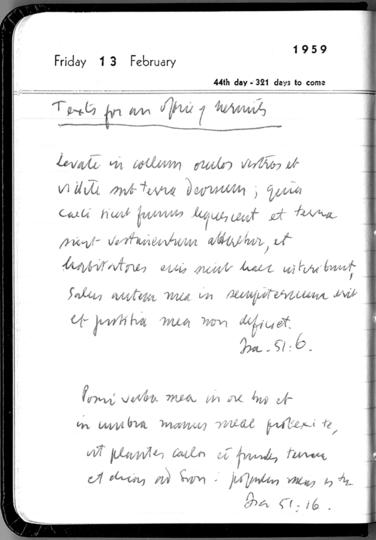 1959
Friday 13 February
44th day - 321 days to come
Texts for an office of hermits
Levate in coelum oculos vestros et
videte sub terra deorsum; quia
caeli sicut fumus liquescent et terra
sicut vestimentum atteretur, et
habitatores eius sicut haec interibunt,
Salus autem mea in sempiternum erit
et justitia mea non deficiet.
Isa. 51:6.
Posui verba mea in ore tuo et
in umbra manus meae protexi te,
ut plantes caelos et fundes terram
et dicas ad Sion: populus meus es tu
Isa 51:16.